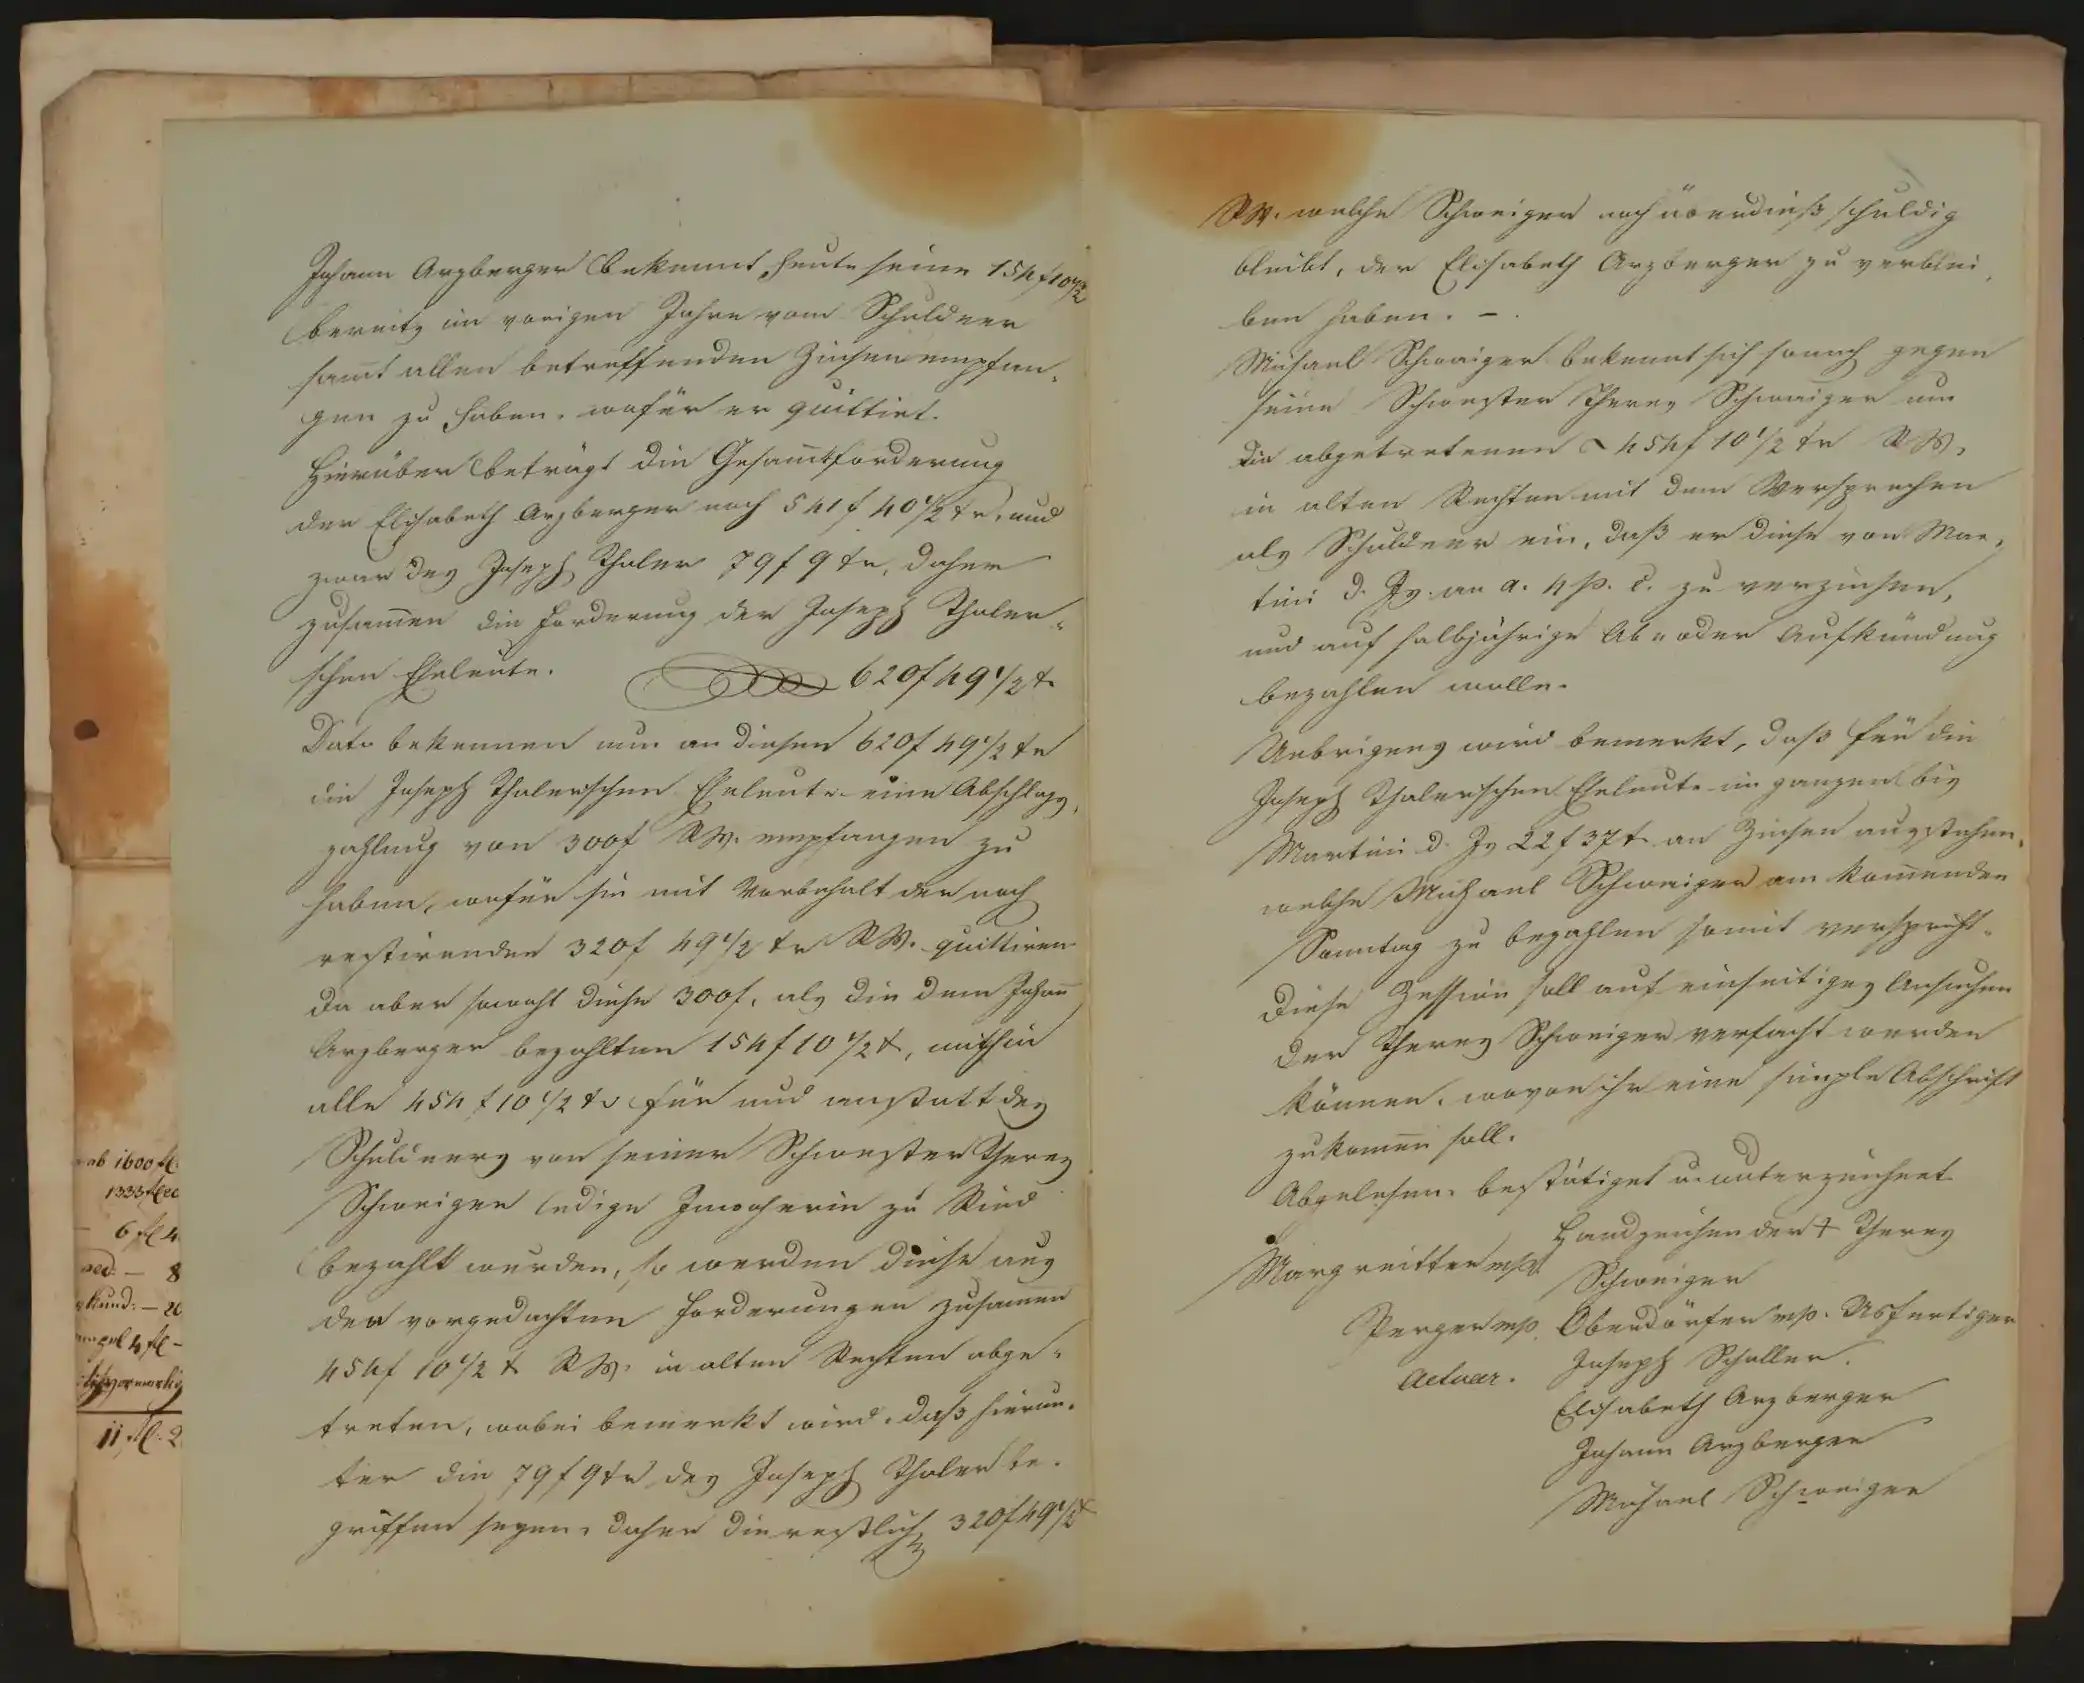 Johann Arzberger bekennt heute seine 154f 10 1/2
bereits im vorigen Jahre vom Schuldner
samt allen betreffenden Zinsen empfan„
gen zu haben, wofür er quittirt.
Hierüber beträgt die Gesamtforderung
der Elisabeth Arzberger noch 541 f 40 1/2 kr, und
zwar des Joseph Thaler 79 f 9 kr, daher
zusamen die Forderung der Joseph Thaler„
schen Eheleute. 620f 49 1/2 k
Dato bekennen nun an diesen 620f 49 1/2 kr
die Joseph Thalerschen Eheleute eine Abschlags„
zahlung von 300f RW. empfangen zu
haben, wofür sie mit Vorbehalt der noch
restirenden 320f 49 1/2 kr RW. quittiren
Da aber sowohl diese 300f, als die dem Johan
Arzberger bezahlten 154f 10 1/2 k, mithin
alle 454 f 10 1/2 kr für und anstatt des
Schuldners von seiner Schwester Theres
Schweiger ledige Inwohnerin zu Ried
bezahlt wurden, so werden diese aus
den vorgedachten Forderungen zusamen
454f 10 1/2 k RW. in alten Rechten abge„
treten, wobei bemerkt wird, daß hierun„
ter die 79f 9kr des Joseph Thaler be„
griffen seyen, daher die restlich 320f 49 1/2 k
RW. welche Schweiger noch überdieß schuldig
bleibt, der Elisabeth Arzberger zu verblei„
ben haben. –
Michael Schweiger bekennt sich sonach gegen
seine Schwester Theres Schweiger um
die abgetretenen 454f 10 1/2 kr RW.
in alten Rechten mit dem Versprechen
als Schuldner ein, daß er diese von Mar„
tini d. Js. an a. 4 p. c. zu verzinsen,
und auf halbjährige Ab„ oder Aufkündung
bezahlen wolle.
Uebrigens wird bemerkt, daß für die
Joseph Thalerschen Eheleute im ganzen bis
Martini d. Js 22 f 37 k an Zinsen ausstehen,
welche Michael Schweiger am komenden
Sonntag zu bezahlen somit verspricht.
Diese Zession soll auf einseitiges Ansuchen
der Theres Schweiger verfacht werden
können, wovon ihr eine simple Abschrift
zukomen soll.
Abgelesen, bestätiget u. unterzeichnet
Handzeichen der + Theres
Margreitter mp. Schweiger
Perger mp. Oberdörfer mp. Ausfertiger
Actuar. Joseph Schaller.
Elisabeth Arzberger
Johann Arzberger
Michael Schweiger
ab 1600 fl.
1333 fl
6 fl 4
– 8
kund: – 20
4 fl –
11 fl. 2